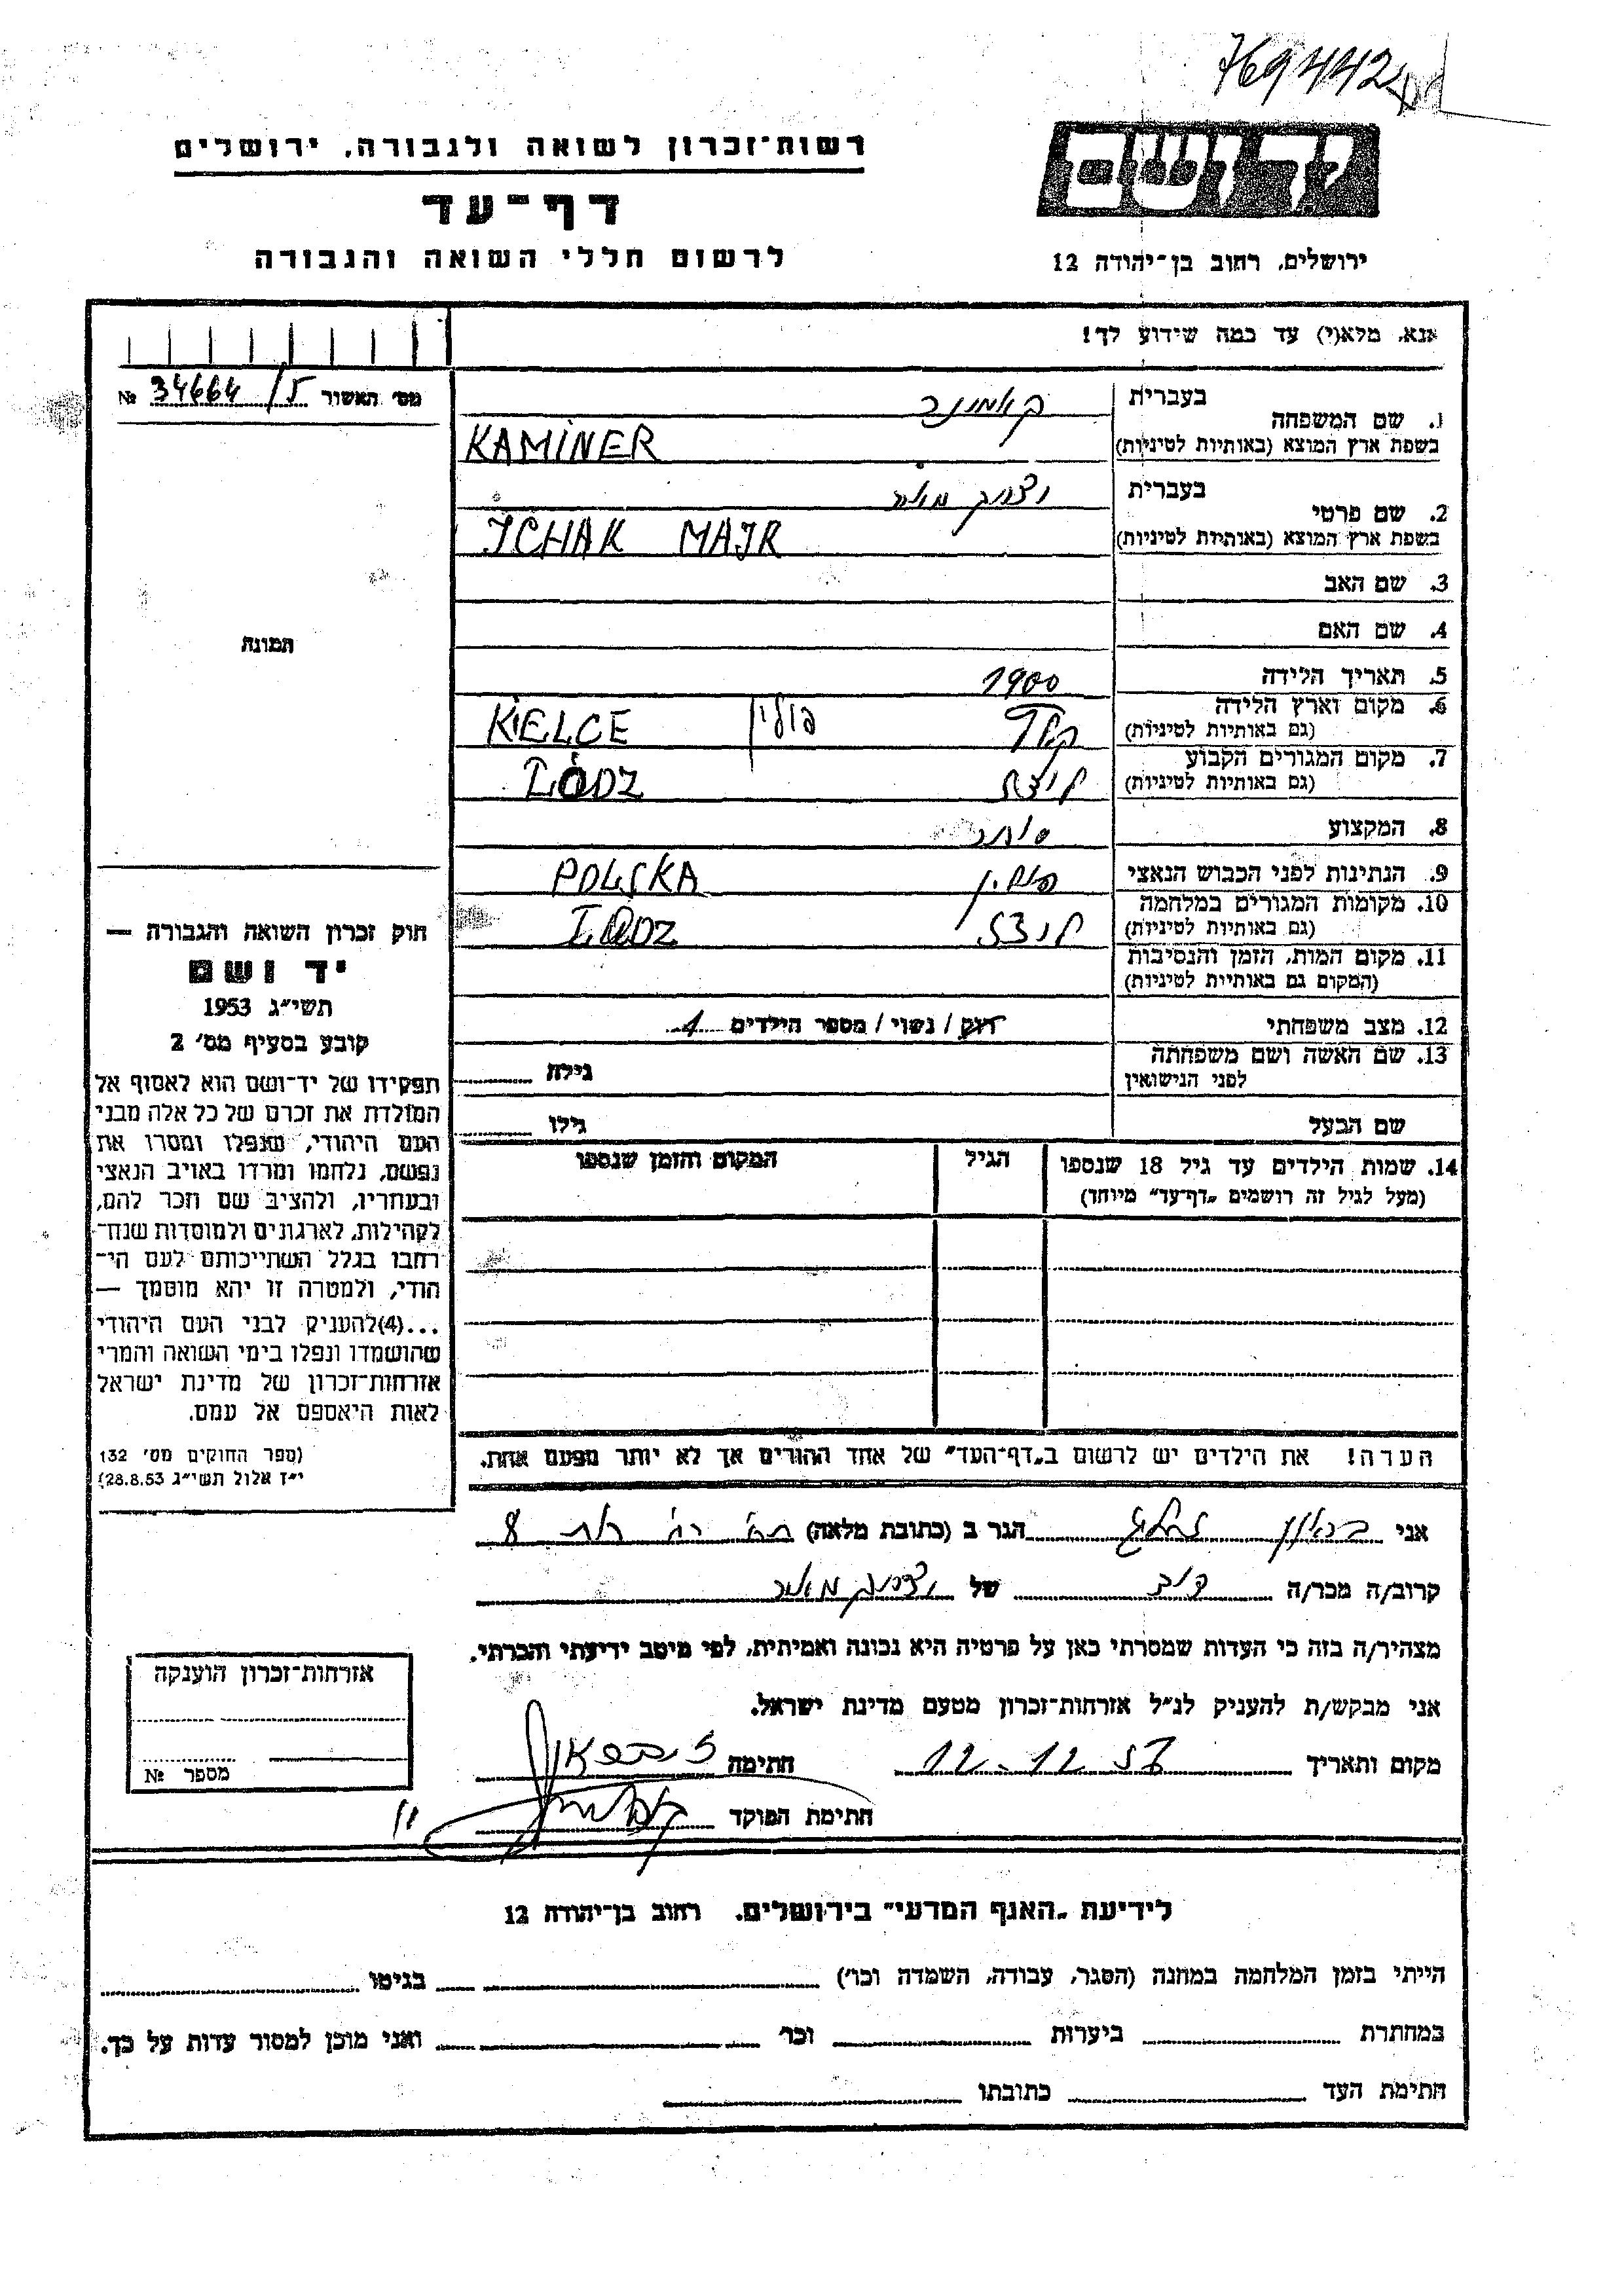 769442
רשות־זכרון לשואה ולגבורה, ירושלים
דף־עד
לרשום חללי השואה והגבורה
יד ושם
ירושלים, רחוב בן־יהודה 12
אנא, מלא(י) עד כמה שידוע לך!
מס׳ האשור 34664/5 №
1. שם המשפחה בעברית קאמינר
בשפת ארץ המוצא (באותיות לטיניות) KAMINER
2. שם פרטי בעברית יצחק מאיר
בשפת ארץ המוצא (באותיות לטיניות) ICHAK MAJR
3. שם האב
4. שם האם
5. תאריך הלידה 1900
6. מקום וארץ הלידה (גם באותיות לטיניות) פולין KIELCE
7. מקום המגורים הקבוע (גם באותיות לטיניות) לודז ŁÓDZ
8. המקצוע סוחר
9. הנתינות לפני הכבוש הנאצי פולין POLSKA
10. מקומות המגורים במלחמה (גם באותיות לטיניות) לודז ŁODZ
11. מקום המות, הזמן והנסיבות (המקום גם באותיות לטיניות)
12. מצב משפחתי רווק / נשוי / מספר הילדים 1
13. שם האשה ושם משפחתה לפני הנישואין גילה
שם הבעל גילו
14. שמות הילדים עד גיל 18 שנספו הגיל המקום והזמן שנספו
(מעל לגיל זה רושמים „דף־עד״ מיוחד)
הערה! את הילדים יש לרשום ב„דף־העד״ של אחד ההורים אך לא יותר מפעם אחת.
תמונה
חוק זכרון השואה והגבורה —
יד ושם
תשי״ג 1953
קובע בסעיף מס׳ 2
תפקידו של יד־ושם הוא לאסוף אל
המולדת את זכרם של כל אלה מבני
העם היהודי, שנפלו ומסרו את
נפשם, נלחמו ומרדו באויב הנאצי
ובעוזריו, ולהציב שם וזכר להם,
לקהילות, לארגונים ולמוסדות שנח־
רבו בגלל השתייכותם לעם הי־
הודי, ולמטרה זו יהא מוסמך —
...(4)להעניק לבני העם היהודי
שהושמדו ונפלו בימי השואה והמרי
אזרחות־זכרון של מדינת ישראל
לאות היאספם אל עמם.
(ספר החוקים מס׳ 132
י״ז אלול תשי״ג 28.8.53)
אני הגר ב (כתובת מלאה) 8
קרוב/ה מכר/ה של יצחק מאיר
מצהיר/ה בזה כי העדות שמסרתי כאן על פרטיה היא נכונה ואמיתית, לפי מיטב ידיעתי והכרתי.
אני מבקש/ת להעניק לנ״ל אזרחות־זכרון מטעם מדינת ישראל.
מקום ותאריך 12.12.57 חתימה
חתימת הפוקד
אזרחות־זכרון הוענקה
מספר №
לידיעת „האגף המדעי״ בירושלים, רחוב בן־יהודה 12
הייתי בזמן המלחמה במחנה (הסגר, עבודה, השמדה וכו׳) בגיטו
במחתרת ביערות וכו׳ ואני מוכן למסור עדות על כך.
חתימת העד כתובתו